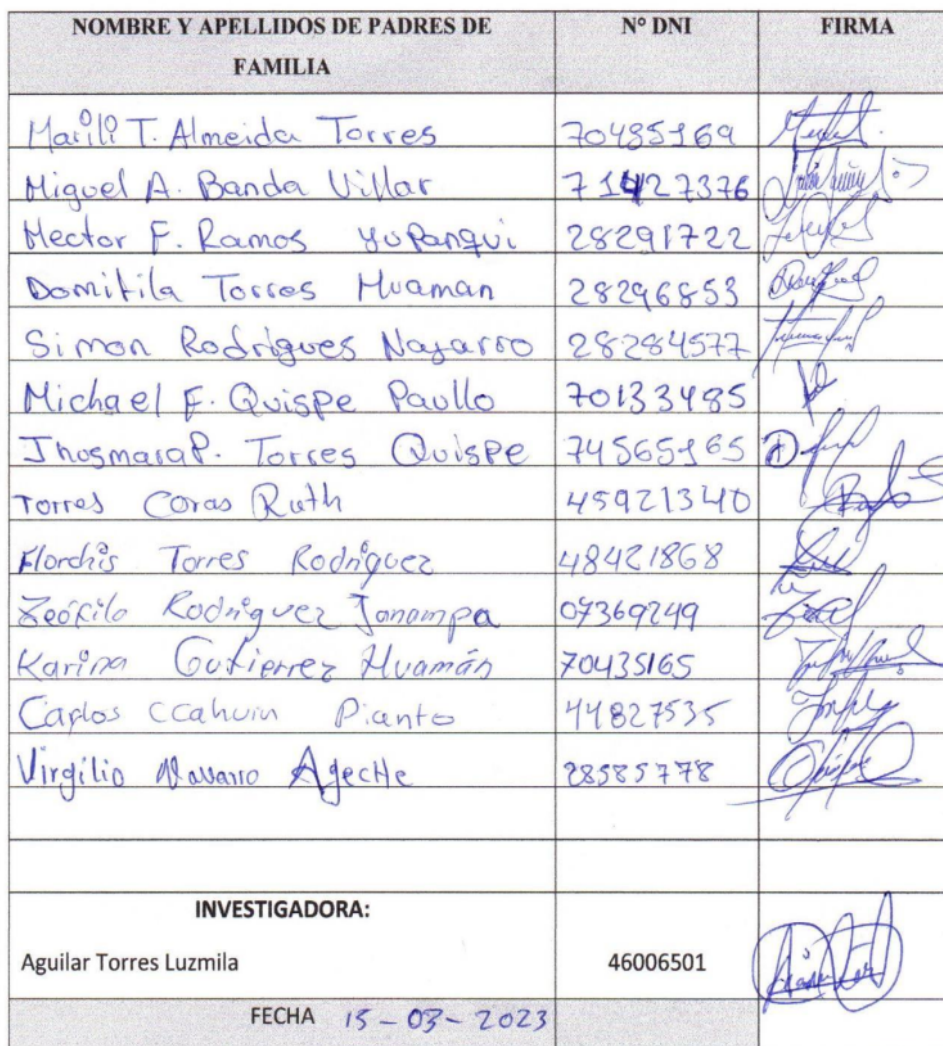 NOMBRE Y APELLIDOS DE PADRES DE FAMILIA N° DNI FIRMA
Marili T. Almeida Torres 70485169
Miguel A. Banda Villar 71427376
Hector F. Ramos Yupanqui 28291722
Domitila Torres Huaman 28296853
Simon Rodrigues Najarro 28284577
Michael F. Quispe Paullo 70133485
Jhosmara P. Torres Quispe 74565165
Torres Coras Ruth 45921340
Florchis Torres Rodriguez 48421868
Zeófilo Rodriguez Janampa 07369249
Karina Gutierrez Huamán 70435165
Carlos Ccahuin Pianto 44827535
Virgilio Navarro Ageche 28585778
INVESTIGADORA:
Aguilar Torres Luzmila 46006501
FECHA 15-03-2023